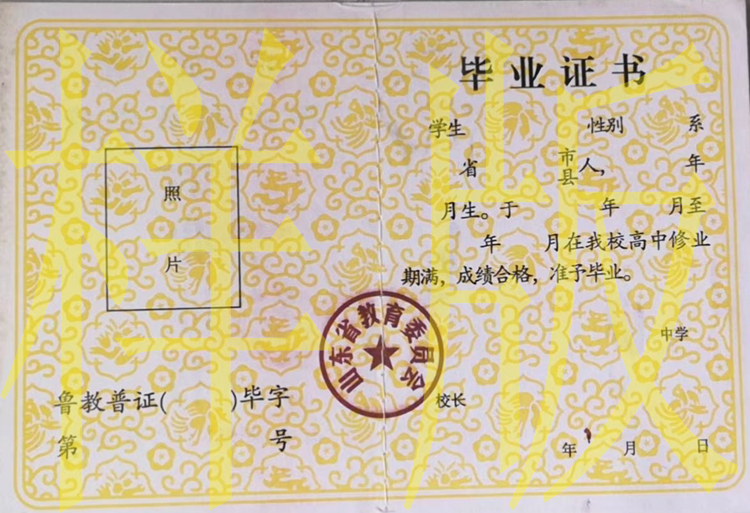 照
片
鲁教普证( )毕字
第 号
山东省教育委员会
毕业证书
学生 性别 系
省 市县人, 年
月生。于 年 月至
年 月在我校高中修业
期满,成绩合格,准予毕业。
中学
校长
年 月 日
样版